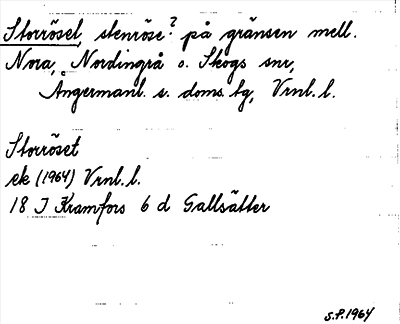 Storröset, stenröse? på gränsen mell.
Nora, Nordingrå o. Skogs snr,
Ångermanl. s. doms. tg, Vrnl. l.
Storröset
ek (1964) Vrnl. l.
18 I Kramfors 6 d Gallsätter
S.P. 1964